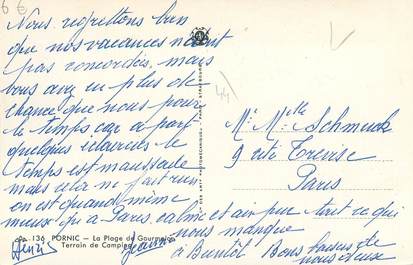 6 €
Nous regrettons bien
que nos vacances n'aient
pas concordés, mais
vous avez eu plus de
chance que nous pour
le temps car à part
quelques éclaircies le
temps est maussade
mais cela ne fait rien
on est quand même
mieux qu'à Paris, calme et air pur tout ce qui
nous manque
à Bientôt Bons baisers de
nous deux
Denis
44
Mr Melle Schmuck
9 cité Trevise
Paris
136 PORNIC — La Plage de Gourmalon
Terrain de Camping